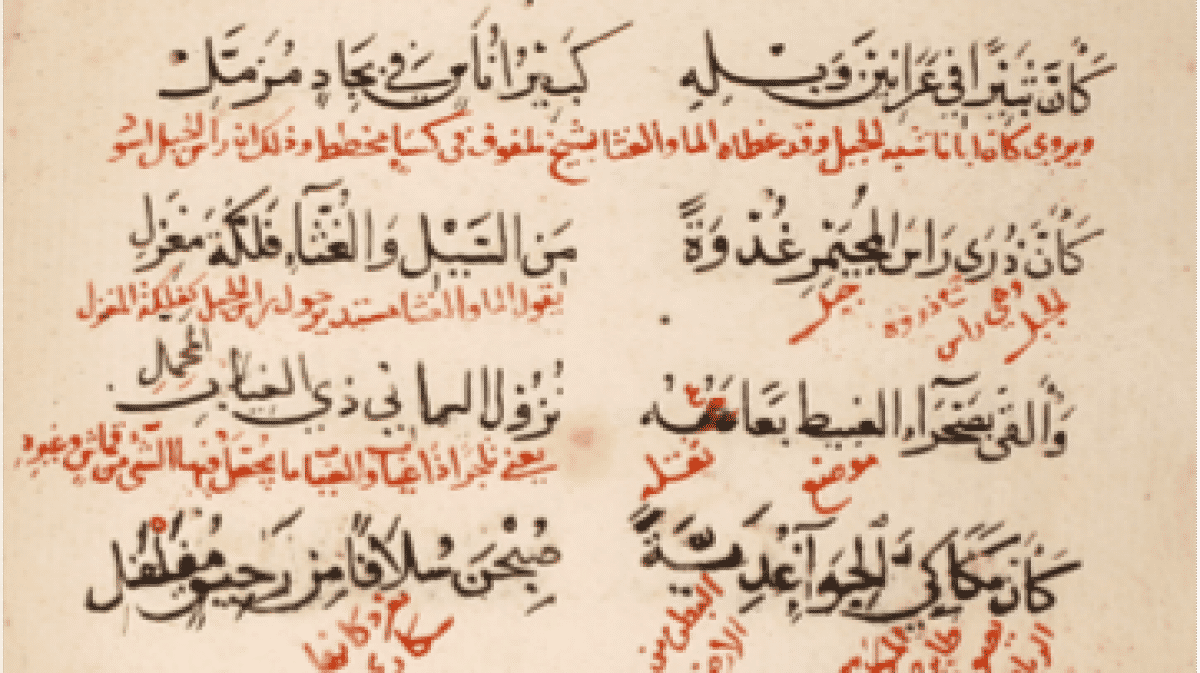 كَأَنَّ ثَبِيْرًا فِي عَرَانِينَ وَبْلِهِ كَبِيْرُ أُنَاسٍ فِي بِجَادٍ مُزَمَّلِ
ويروى كان ابانا شبه الجبل وقد غطاه الماء والغثا بشيخ ملفوف في كساء مخطط وذلك ان راس الجبل اسود
كَأَنَّ ذُرَى رَاسِ المُجَيْمِرِ غُذْوَةً مِنَ السَّيْلِ وَالغُثَّاءِ فَلْكَةُ مِغْزَلِ
الجبل وهي راس ذروة جبل يقول الماء والغثا مستدير حول راس الجبل كفلكة المغزل
وَأَلْقَى بِصَحْرَاءِ الغَبِيطِ بَعَاعَهُ نُزُولَ اليماني ذي العياب المحمل
موضع ثقله يعني تاجرا ذا عياب والعياب ما يجعل فيها الشي من قماش وغيره
كَأَنَّ مَكَاكِيَّ الجِوَآءِ غُدَيَّةً صُبِحْنَ سُلَافًا مِنْ رَحِيقٍ مُفَلْفَلِ